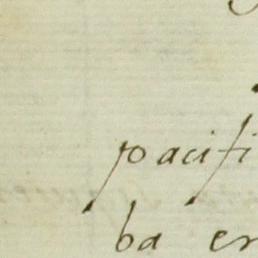 pacifi
ba en